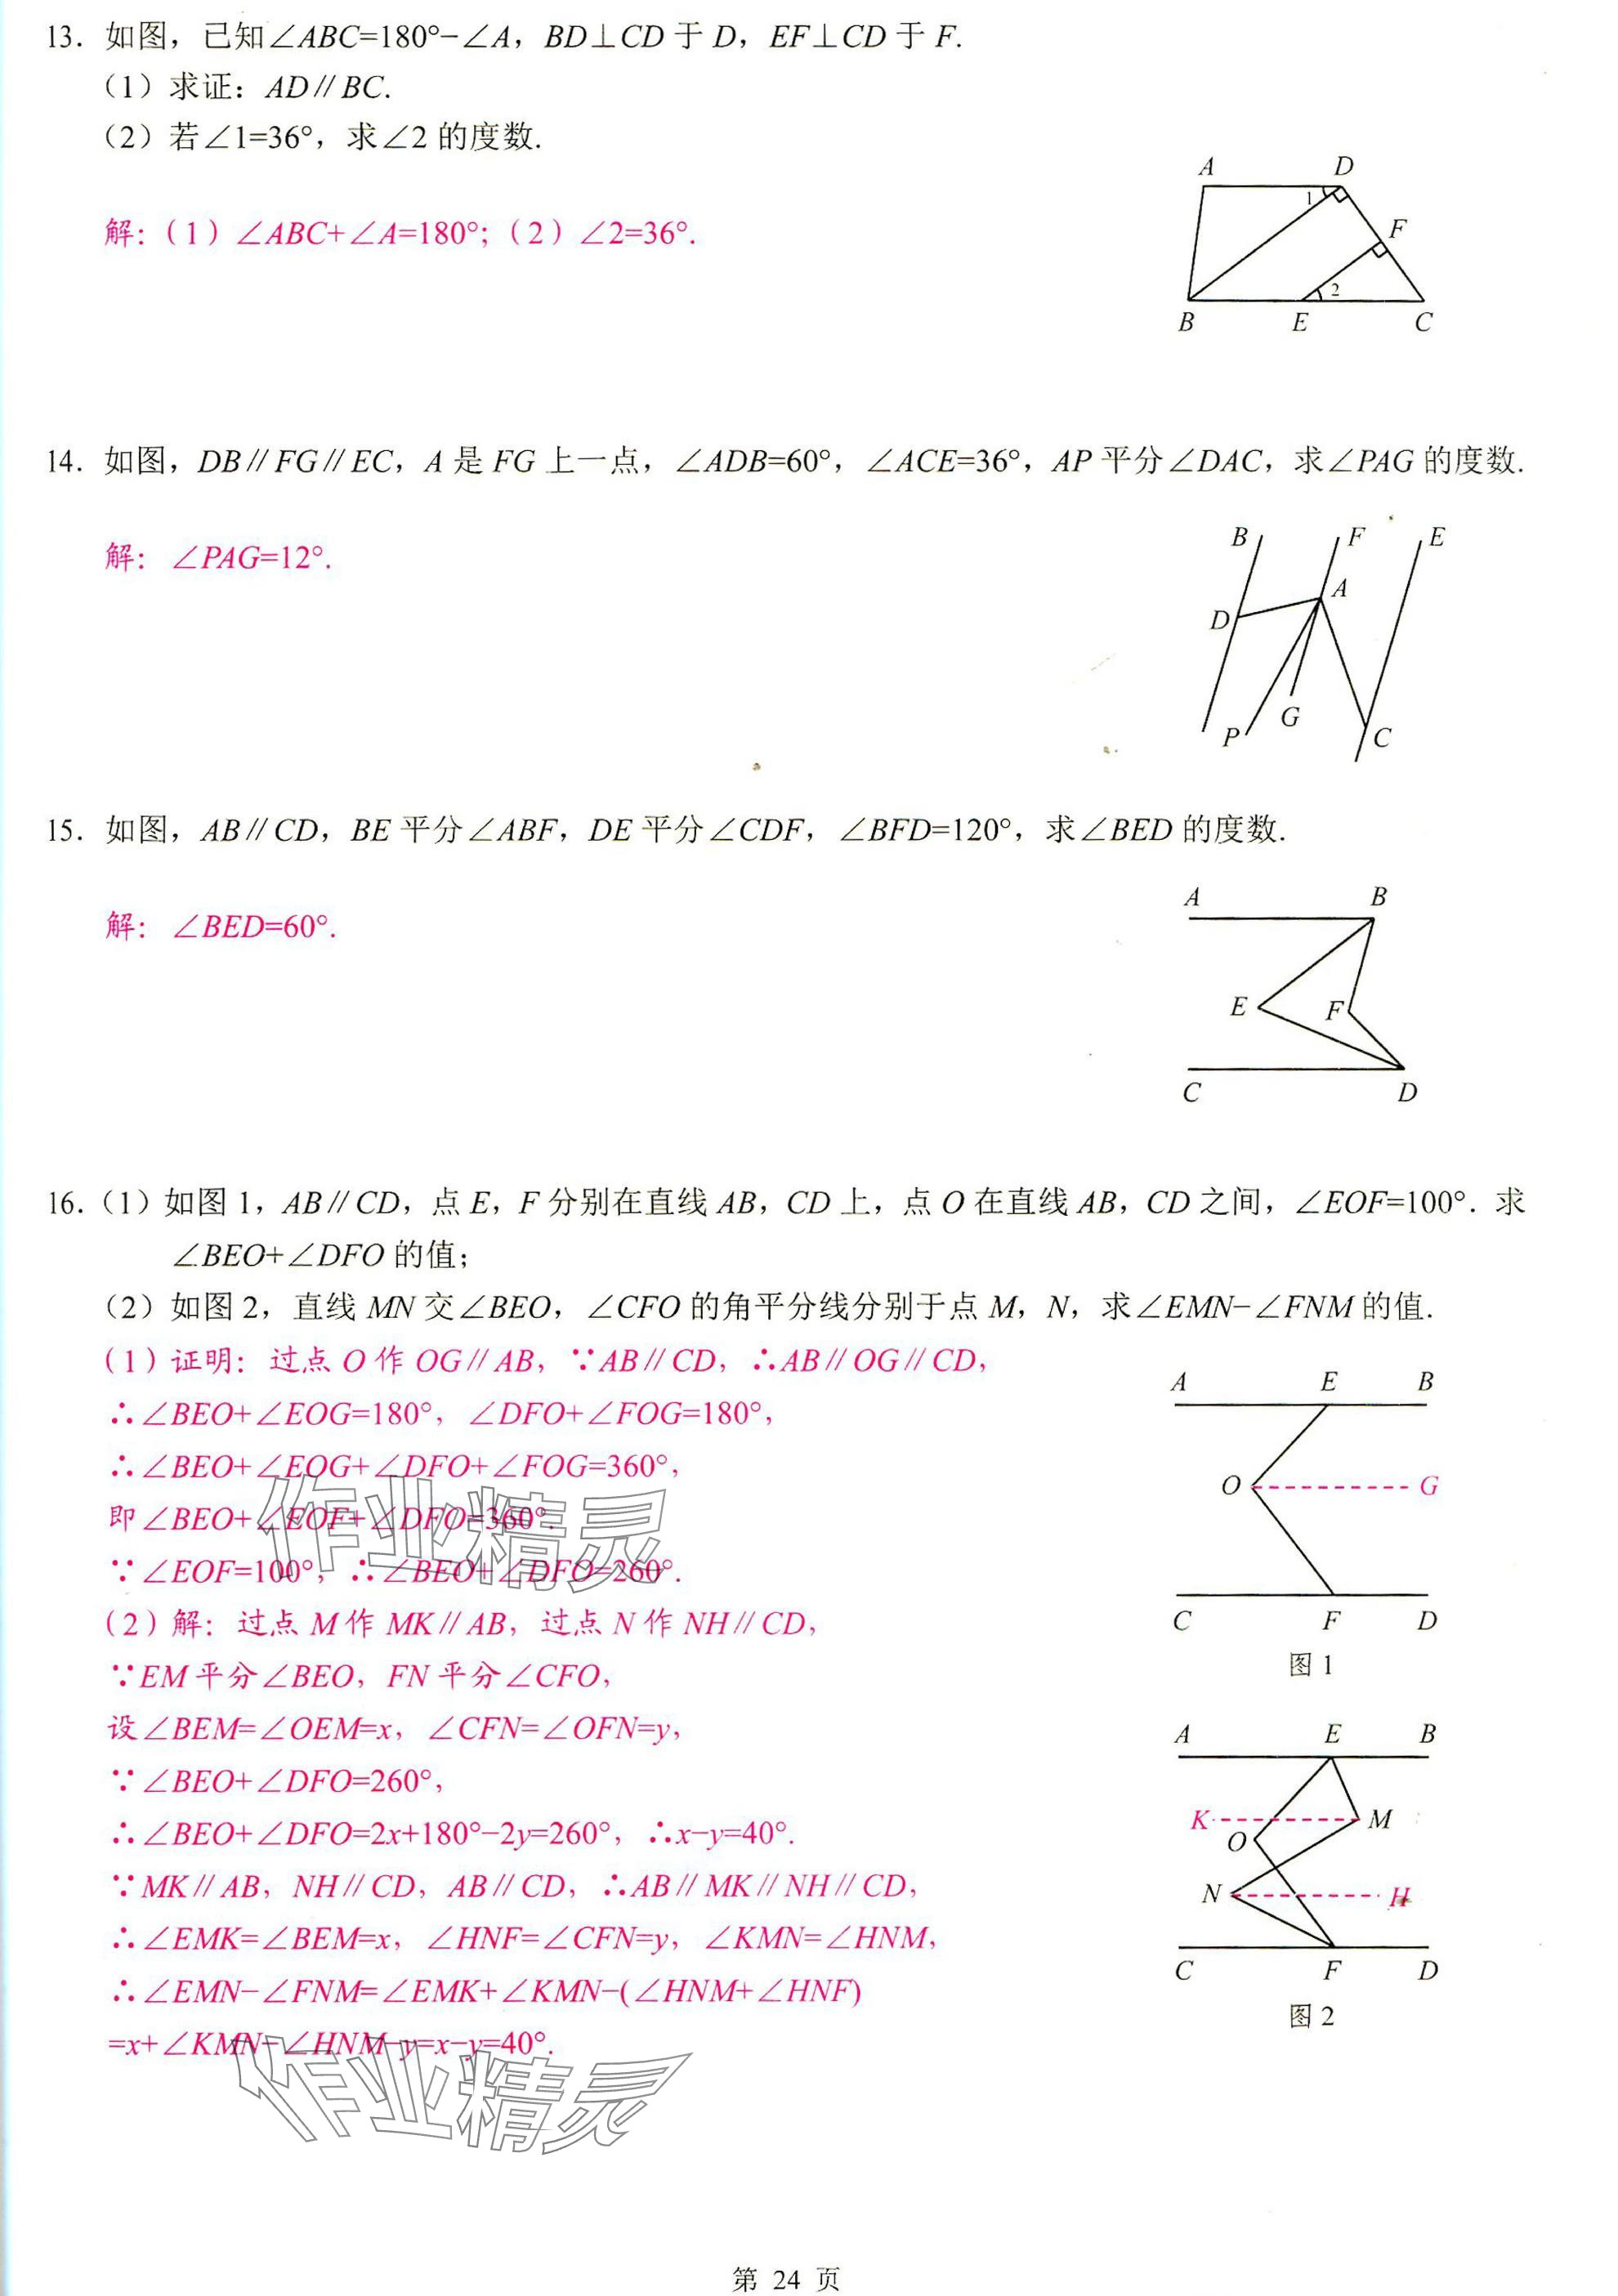 13. 如图，已知∠ABC=180°−∠A，BD⊥CD 于 D，EF⊥CD 于 F.
（1）求证：AD∥BC.
（2）若∠1=36°，求∠2 的度数.
解：（1）∠ABC+∠A=180°；（2）∠2=36°.
A D
1
F
2
B E C
14. 如图，DB∥FG∥EC，A 是 FG 上一点，∠ADB=60°，∠ACE=36°，AP 平分∠DAC，求∠PAG 的度数.
解：∠PAG=12°.
B F E
A
D
G
P C
15. 如图，AB∥CD，BE 平分∠ABF，DE 平分∠CDF，∠BFD=120°，求∠BED 的度数.
解：∠BED=60°.
A B
E F
C D
16.（1）如图 1，AB∥CD，点 E，F 分别在直线 AB，CD 上，点 O 在直线 AB，CD 之间，∠EOF=100°. 求
∠BEO+∠DFO 的值；
（2）如图 2，直线 MN 交∠BEO，∠CFO 的角平分线分别于点 M，N，求∠EMN−∠FNM 的值.
（1）证明：过点 O 作 OG∥AB，∵AB∥CD，∴AB∥OG∥CD，
∴∠BEO+∠EOG=180°，∠DFO+∠FOG=180°，
∴∠BEO+∠EOG+∠DFO+∠FOG=360°，
即∠BEO+∠EOF+∠DFO=360°.
∵∠EOF=100°，∴∠BEO+∠DFO=260°.
（2）解：过点 M 作 MK∥AB，过点 N 作 NH∥CD，
∵EM 平分∠BEO，FN 平分∠CFO，
设∠BEM=∠OEM=x，∠CFN=∠OFN=y，
∵∠BEO+∠DFO=260°，
∴∠BEO+∠DFO=2x+180°−2y=260°，∴x−y=40°.
∵MK∥AB，NH∥CD，AB∥CD，∴AB∥MK∥NH∥CD，
∴∠EMK=∠BEM=x，∠HNF=∠CFN=y，∠KMN=∠HNM，
∴∠EMN−∠FNM=∠EMK+∠KMN−(∠HNM+∠HNF)
=x+∠KMN−∠HNM−y=x−y=40°.
A E B
O G
C F D
图 1
A E B
K M
O
N H
C F D
图 2
作业精灵
作业精灵
第 24 页